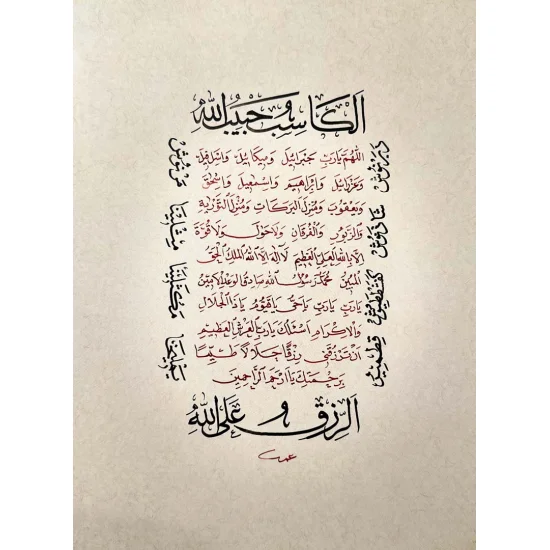 اَلْكَاسِبُ حَبِيبُ اللهِ
اللّٰهُمَّ يَارَبِّ جَبْرَائِيلَ وَمِيكَائِيلَ وَاسْرَافِيلَ
وَعَزْرَائِيلَ وَابْرَاهِيمَ وَاسْمٰعِيلَ وَاسْحٰقَ
وَيَعْقُوبَ وَمُنْزِلَ الْبَرَكَاتِ وَمُنْزِلَ التَّوْرٰيةِ
وَالزَّبُورِ وَالْفُرْقَانِ وَلَا حَوْلَ وَلَا قُوَّةَ
اِلَّا بِاللهِ الْعَلِيِّ الْعَظِيمِ لَا اِلٰهَ اِلَّا اللهُ الْمَلِكُ الْحَقُّ
الْمُبِينُ مُحَمَّدٌ رَسُولُ اللهِ صَادِقُ الْوَعْدِ الْاَمِينُ
يَارَبِّ يَارَبِّ يَاحَيُّ يَاقَيُّومُ يَاذَا الْجَلَالِ
وَالْاِكْرَامِ اَسْئَلُكَ يَارَبَّ الْعَرْشِ الْعَظِيمِ
اَنْ تَرْزُقَنِي رِزْقًا حَلَالًا طَيِّبًا
بِرَحْمَتِكَ يَا اَرْحَمَ الرَّاحِمِينَ
اَلرِّزْقُ عَلَى اللهِ
دبرنوش
شاذنوش
قطمير
مرنوش
يمليخا
عمر